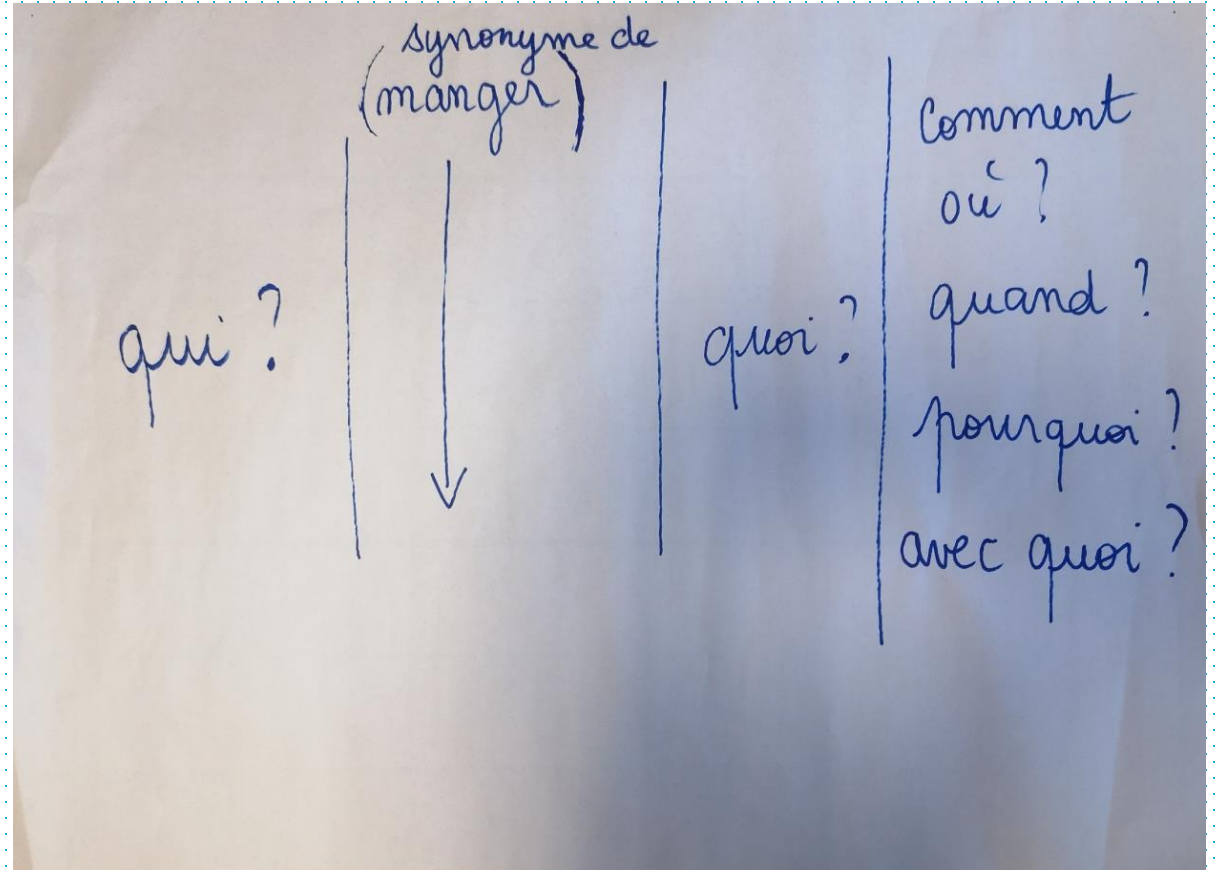 synonyme de
(manger)
qui ?
quoi ?
comment
où ?
quand ?
pourquoi ?
avec quoi ?